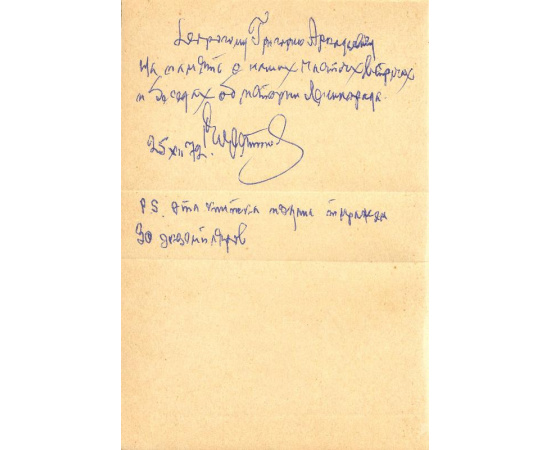 Дорогому Григорию Аркадьевичу
На память о наших частых встречах
и беседах об истории Ленинграда.
25 XII 72.
P.S. Эта книжечка издана тиражем
30 экземпляров